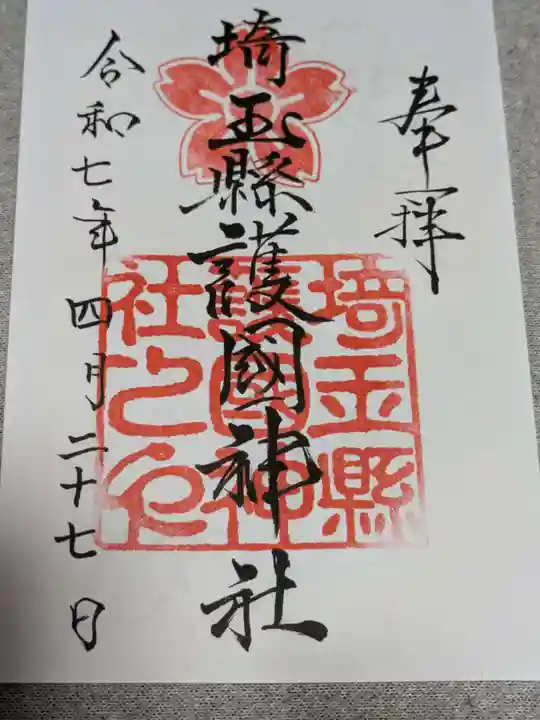 奉拝
埼玉縣護國神社
埼玉縣
護國神
社之印
令和七年四月二十七日